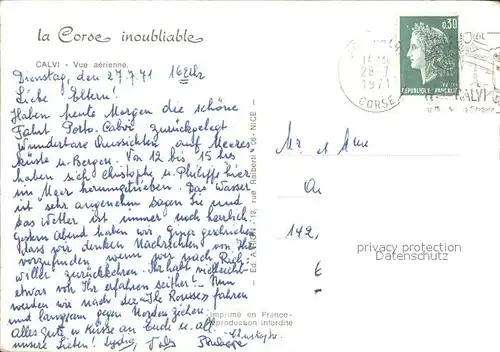 la Corse inoubliable
CALVI - Vue aérienne.
Dienstag, den 27.7.71 16 Uhr
Liebe Eltern!
Haben heute Morgen die schöne
Fahrt Porto-Calvi zurückgelegt
Wunderbare Aussichten auf Meeres
küste u. Bergen. Von 12 bis 15 hrs
haben sich Christophe u. Philippe hier
im Meer herumgetrieben. Das Wasser
ist sehr angenehm sagen sie und
das Wetter ist immer noch herrlich.
Gestern Abend haben wir geschrieben
dass wir denken Nachrichten von Ihr
vorzufinden wenn wir nach
willer zurückkehren. Ihr habt vielleicht
etwas von Ihr erfahren seither! Nun
werden wir nach der "Ile Rousse" fahren
und langsam gegen Norden ziehen.
Alles Gute u. Küsse an Euch u. all
unsere Lieben!
Christophe
Philippe
Ed. AVIGNON, 13, rue Raiberti - 06 - NICE -
Imprimé en France
Reproduction interdite
0,30
REPUBLIQUE FRANÇAISE
28 - 7
1971
CORSE
CALVI
Mr et Mme
142,
privacy protection
watermark